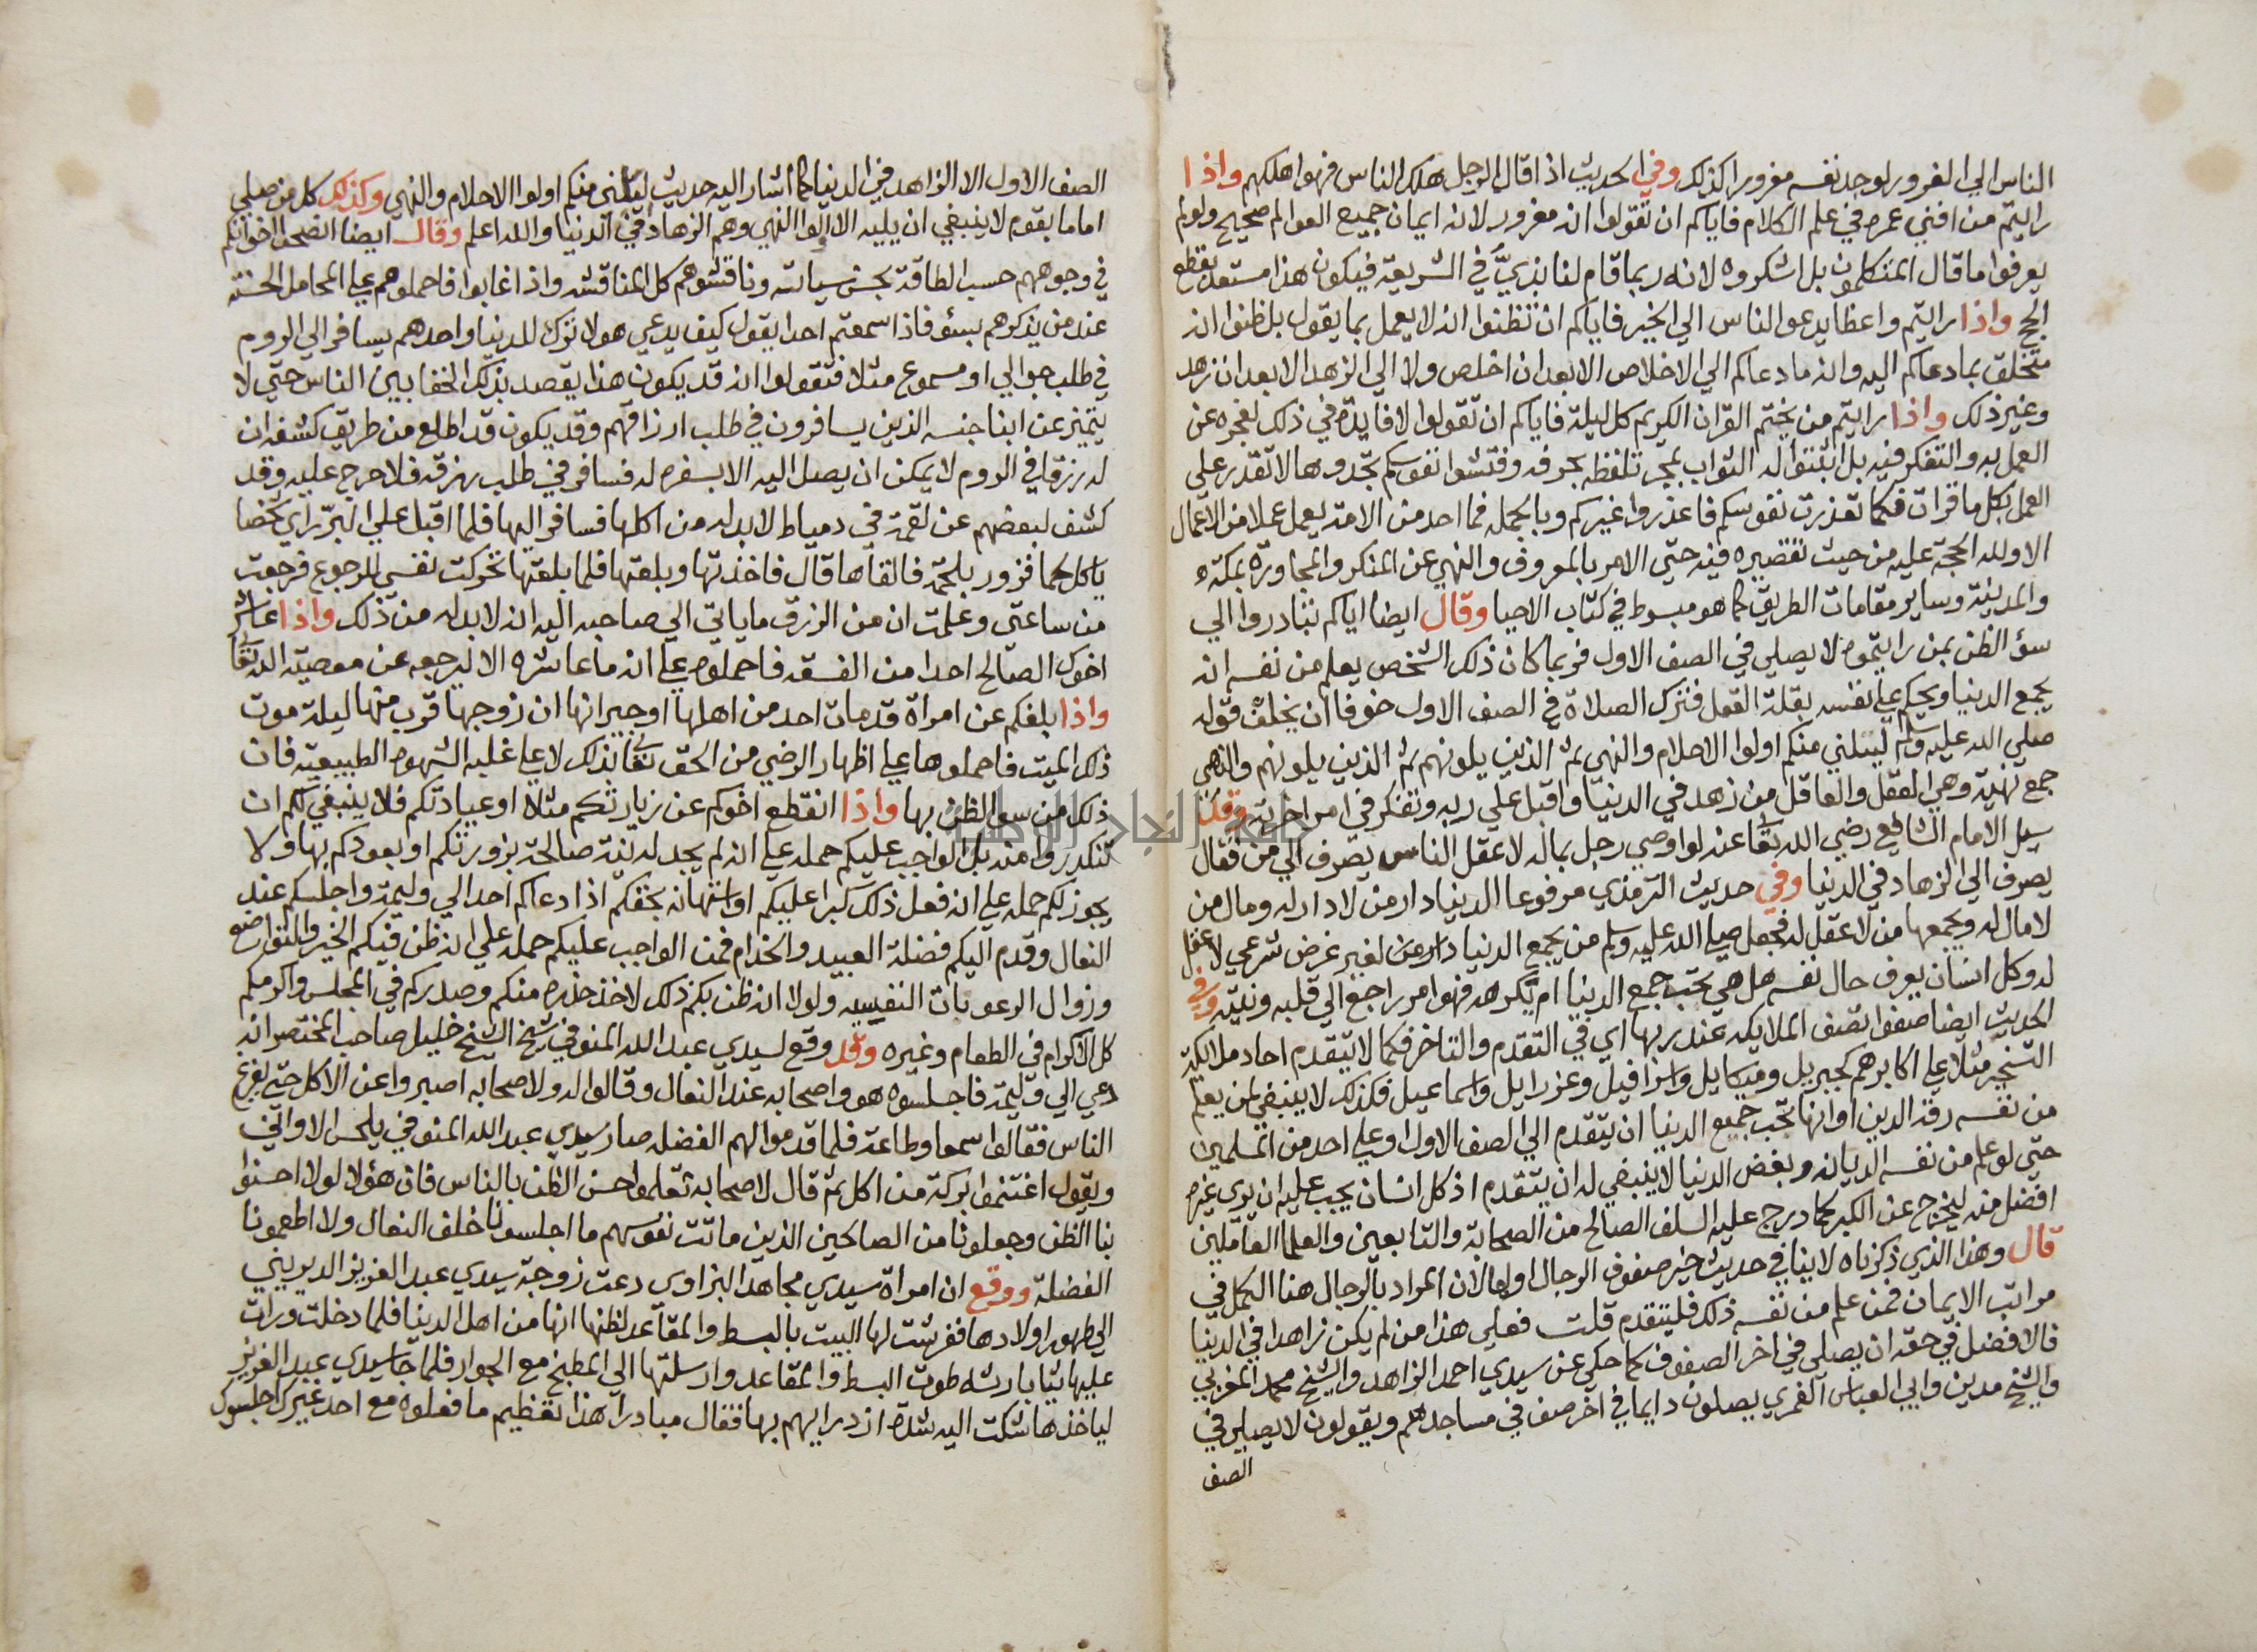 الناس الي الغرور لوجد نفسه مغرورا كذلك وفي الحديث اذا قال الرجل هلك الناس فهو اهلكهم واذا
رايتم من افني عمره في علم الكلام فاياكم ان تقولوا انه مغرور لان ايمان جميع العوالم صحيح ولو لم
يعرفوا ما قال المتكلمون بل اشكروه لانه ربما قام لنا بذبّ في الشريعة فيكون هذا مستعد بقطع
الحج واذا رايتم واعظا يدعو الناس الي الخير فاياكم ان تظنوا انه لا يعمل بما يقول بل ظنوا انه
متخلق بما دعاكم اليه وانه ما دعاكم الي الاخلاص الا بعد ان اخلص ولا الي الزهد الا بعد ان زهد
وغير ذلك واذا رايتم من يختم القران الكريم كل ليلة فاياكم ان تقولوا لا فايدة في ذلك لعجزه عن
العمل به والتفكر فيه بل اثبتوا له الثواب بمجرد تلفظه بحروفه وفتشوا نفوسكم تجدوها لا تقدر علي
العمل بكل ما قرات فكما تعذرت نفوسكم فاعذروا غيركم وبالجملة فما احد من الامة يعمل عملا من الاعمال
الا ولله الحجة عليه من حيث تقصيره فيه حتي الامر بالمعروف والنهي عن المنكر والمجاورة بمكة
والمدينة وساير مقامات الطريق كما هو مبسوط في كتاب الاحيا وقال ايضا اياكم تبادروا الي
سؤ الظن بمن رايتموه لا يصلي في الصف الاول فربما كان ذلك الشخص يعلم من نفسه انه
يجمع الدنيا ويحكم علي نفسه بقلة العقل فترك الصلاة في الصف الاول خوفا ان يخالف قوله
صلي الله عليه وسلم ليلني منكم اولوا الاحلام والنهي ثم الذين يلونهم ثم الذين يلونهم والنهي
جمع نهية وهي العقل والعاقل من زهد في الدنيا واقبل علي ربه وتفكر في امر اخرته وقد
سيل الامام الشافعي رضي الله تعا عنه لو اوصي رجل بماله لاعقل الناس يصرف الي من فقال
يصرف الي الزهاد في الدنيا وفي حديث الترمذي مرفوعا الدنيا دار من لا دار له ومال من
لا مال له ويجمعها من لا عقل له فجعل صلي الله عليه وسلم من يجمع الدنيا لغير غرض شرعي لا عقل
له وكل انسان يعرف حال نفسه هل هي تحب جمع الدنيا ام تكرهه فهو امر راجع الي قلبه ونيته وفي
الحديث ايضا صفوا تصف الملايكة عند ربها اي في التقدم والتاخر فكما لا يتقدم احاد ملايكة
التسخير مثلا علي اكابرهم كجبريل وميكايل واسرافيل وعزرايل واسماعيل فكذلك لا ينبغي لمن يعلم
من نفسه رقة الدين او انها تحب جميع الدنيا ان يتقدم الي الصف الاول او علي احد من المسلمين
حتي لو علم من نفسه الديانة وبغض الدنيا لا ينبغي له ان يتقدم اذ كل انسان يجب عليه ان يري غيره
افضل منه ليخرج عن الكبر كما درج عليه السلف الصالح من الصحابة والتابعين والعلما العاملين
قال وهذا الذي ذكرناه لا ينافي حديث خير صفوف الرجال اولها لان المراد بالرجال هنا الكمل في
مراتب الايمان فمن علم من نفسه ذلك فليتقدم قلت فعلي هذا من لم يكن زاهدا في الدنيا
فالافضل في حقه ان يصلي في اخر الصفوف كما حكي عن سيدي احمد الزاهد والشيخ محمد المغربي
والشيخ مدين وابي العباس الغمري يصلون دايما في اخر صف في مساجدهم ويقولون لا يصلي في
الصف
الصف الاول الا الزاهد في الدنيا كما اشار اليه حديث ليلني منكم اولوا الاحلام والنهي وكذلك كل من صلي
اماما بقوم لا ينبغي ان يليه الا اولوا النهي وهم الزهاد في الدنيا والله اعلم وقال ايضا انصحوا اخوانكم
في وجوههم حسب الطاقة وناقشوهم كل المناقشة واذا غابوا فاحملوهم علي المحامل الحسنة
عند من يذكرهم بسؤ فاذا سمعتم احدا يقول كيف يدعي هولا ترك للدنيا واحدهم يسافر الي الروم
في طلب جوالي او مسموع مثلا فتقولوا انه قد يكون هذا يقصد بذلك الخفا بين الناس حتي لا
يتميز عن ابنا جنسه الذين يسافرون في طلب ارزاقهم وقد يكون قد اطلع من طريق كشفه ان
له رزقا في الروم لا يمكن ان يصل اليه الا بسفره له فسافر في طلب رزقه فلا حرج عليه وقد
كشف لبعضهم عن لقمة في دمياط لا بد له من اكلها فسافر اليها فلما اقبل علي البر راي شخصا
ياكل لحما فزور بلحمة فالقاها قال فاخذتها وبلعتها فلما بلعتها تحركت نفسي للرجوع فرجعت
من ساعتي وعلمت ان من الرزق ما ياتي الي صاحبه اليه انه لا بد له من ذلك واذا عاشر
اخوك الصالح احدا من الفسقة فاحملوه علي انه ما عاشره الا ليرجعه عن معصية الله تعا
واذا بلغكم عن امراة قد مات احد من اهلها او جيرانها ان زوجها قرب منها ليلة موت
ذلك الميت فاحملوها علي اظهار الرضي من الحق تعا بذلك لا علي غلبة الشهوة الطبيعية فان
ذلك من سو الظن بها واذا انقطع اخوكم عن زيارتكم مثلا او عيادتكم فلا ينبغي لكم ان
تتكدروا منه بل الواجب عليكم حمله علي انه لم يجد له نية صالحة يزوركم او يعودكم بها ولا
يجوز لكم حمله علي انه فعل ذلك كبرا عليكم او استهانة بحقكم اذا دعاكم احد الي وليمة واجلسكم عند
النعال وقدم اليكم فضلة العبيد والخدام فمن الواجب عليكم حمله علي انه ظن فيكم الخير والتواضع
وزوال الرعونات النفسية ولولا انه ظن بكم ذلك لاخذ حذره منكم وصدركم في المجلس واكرمكم
كل الاكرام في الطعام وغيره وقد وقع لسيدي عبد الله المنوفي شيخ الشيخ خليل صاحب المختصر انه
دعي الي وليمة فاجلسوه هو واصحابه عند النعال وقالوا له ولاصحابه اصبروا عن الاكل حتي يفرغ
الناس فقالوا سمعا وطاعة فلما قدموا لهم الفضلة صار سيدي عبد الله المنوفي يلحس الاواني
ويقول اغتنموا بركة من اكل ثم قال لاصحابه تعلموا حسن الظن بالناس فان هؤلا لولا احسنوا
بنا الظن وجعلونا من الصالحين الذين ماتت نفوسهم ما اجلسونا خلف النعال ولا اطعمونا
الفضلة ووقع ان امراة سيدي مجاهد البزاوي دعت زوجة سيدي عبد العزيز الديريني
الي طهور اولادها ففرشت لها البيت بالبسط والمقاعد لظنها انها من اهل الدنيا فلما دخلت ورات
عليها ثيابا رثة طوت البسط والمقاعد وارسلتها الي المطبخ مع الجوار فلما جا سيدي عبد العزيز
لياخذها شكت اليه شدة ازدرايهم بها فقال مبادرا هذا تعظيم ما فعلوه مع احد غيرك اجلسوك